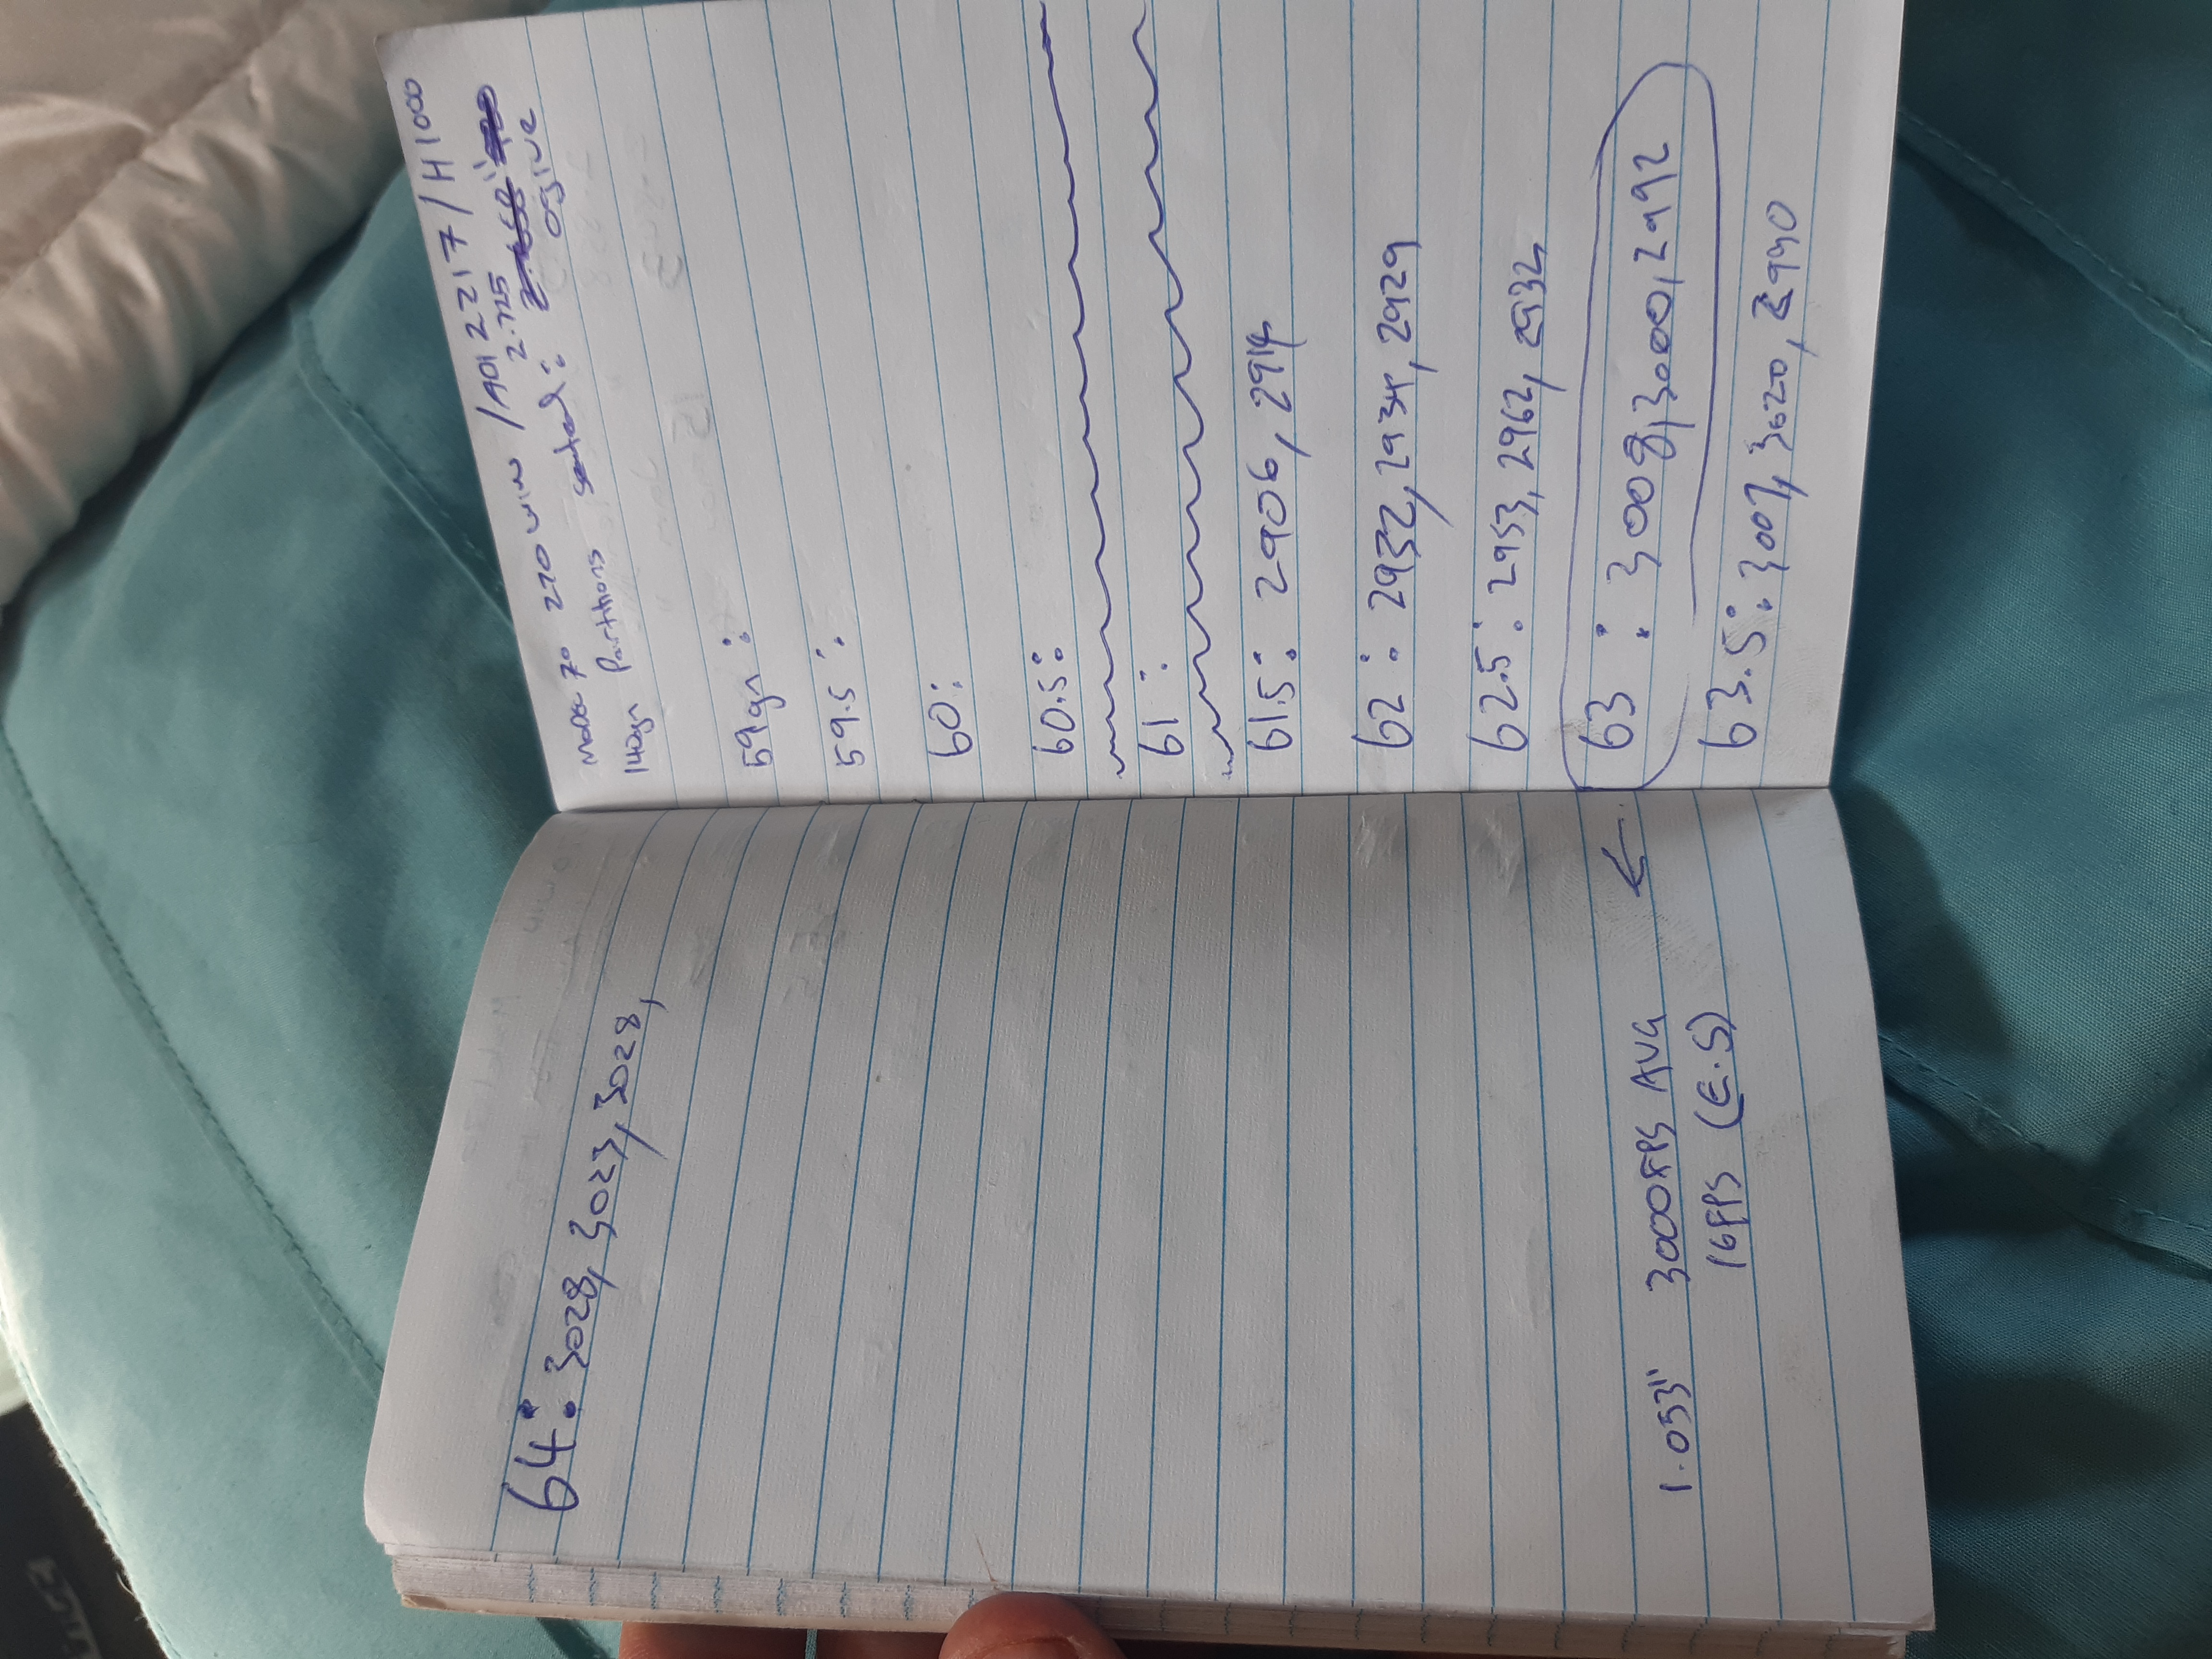 64: 3028, 3023, 3028,
1.053" 3000FPS AVG ←
16FPS (E.S)
Model 70 270 WIN / A012217 / H1000
140gr Partitions seated: 2.725" ogive
59gr:
59.5:
60:
60.5:
61:
61.5: 2906, 2914
62: 2932, 2934, 2929
62.5: 2953, 2962, 2932
63: 3008, 3000, 2992
63.5: 3007, 3020, 2990